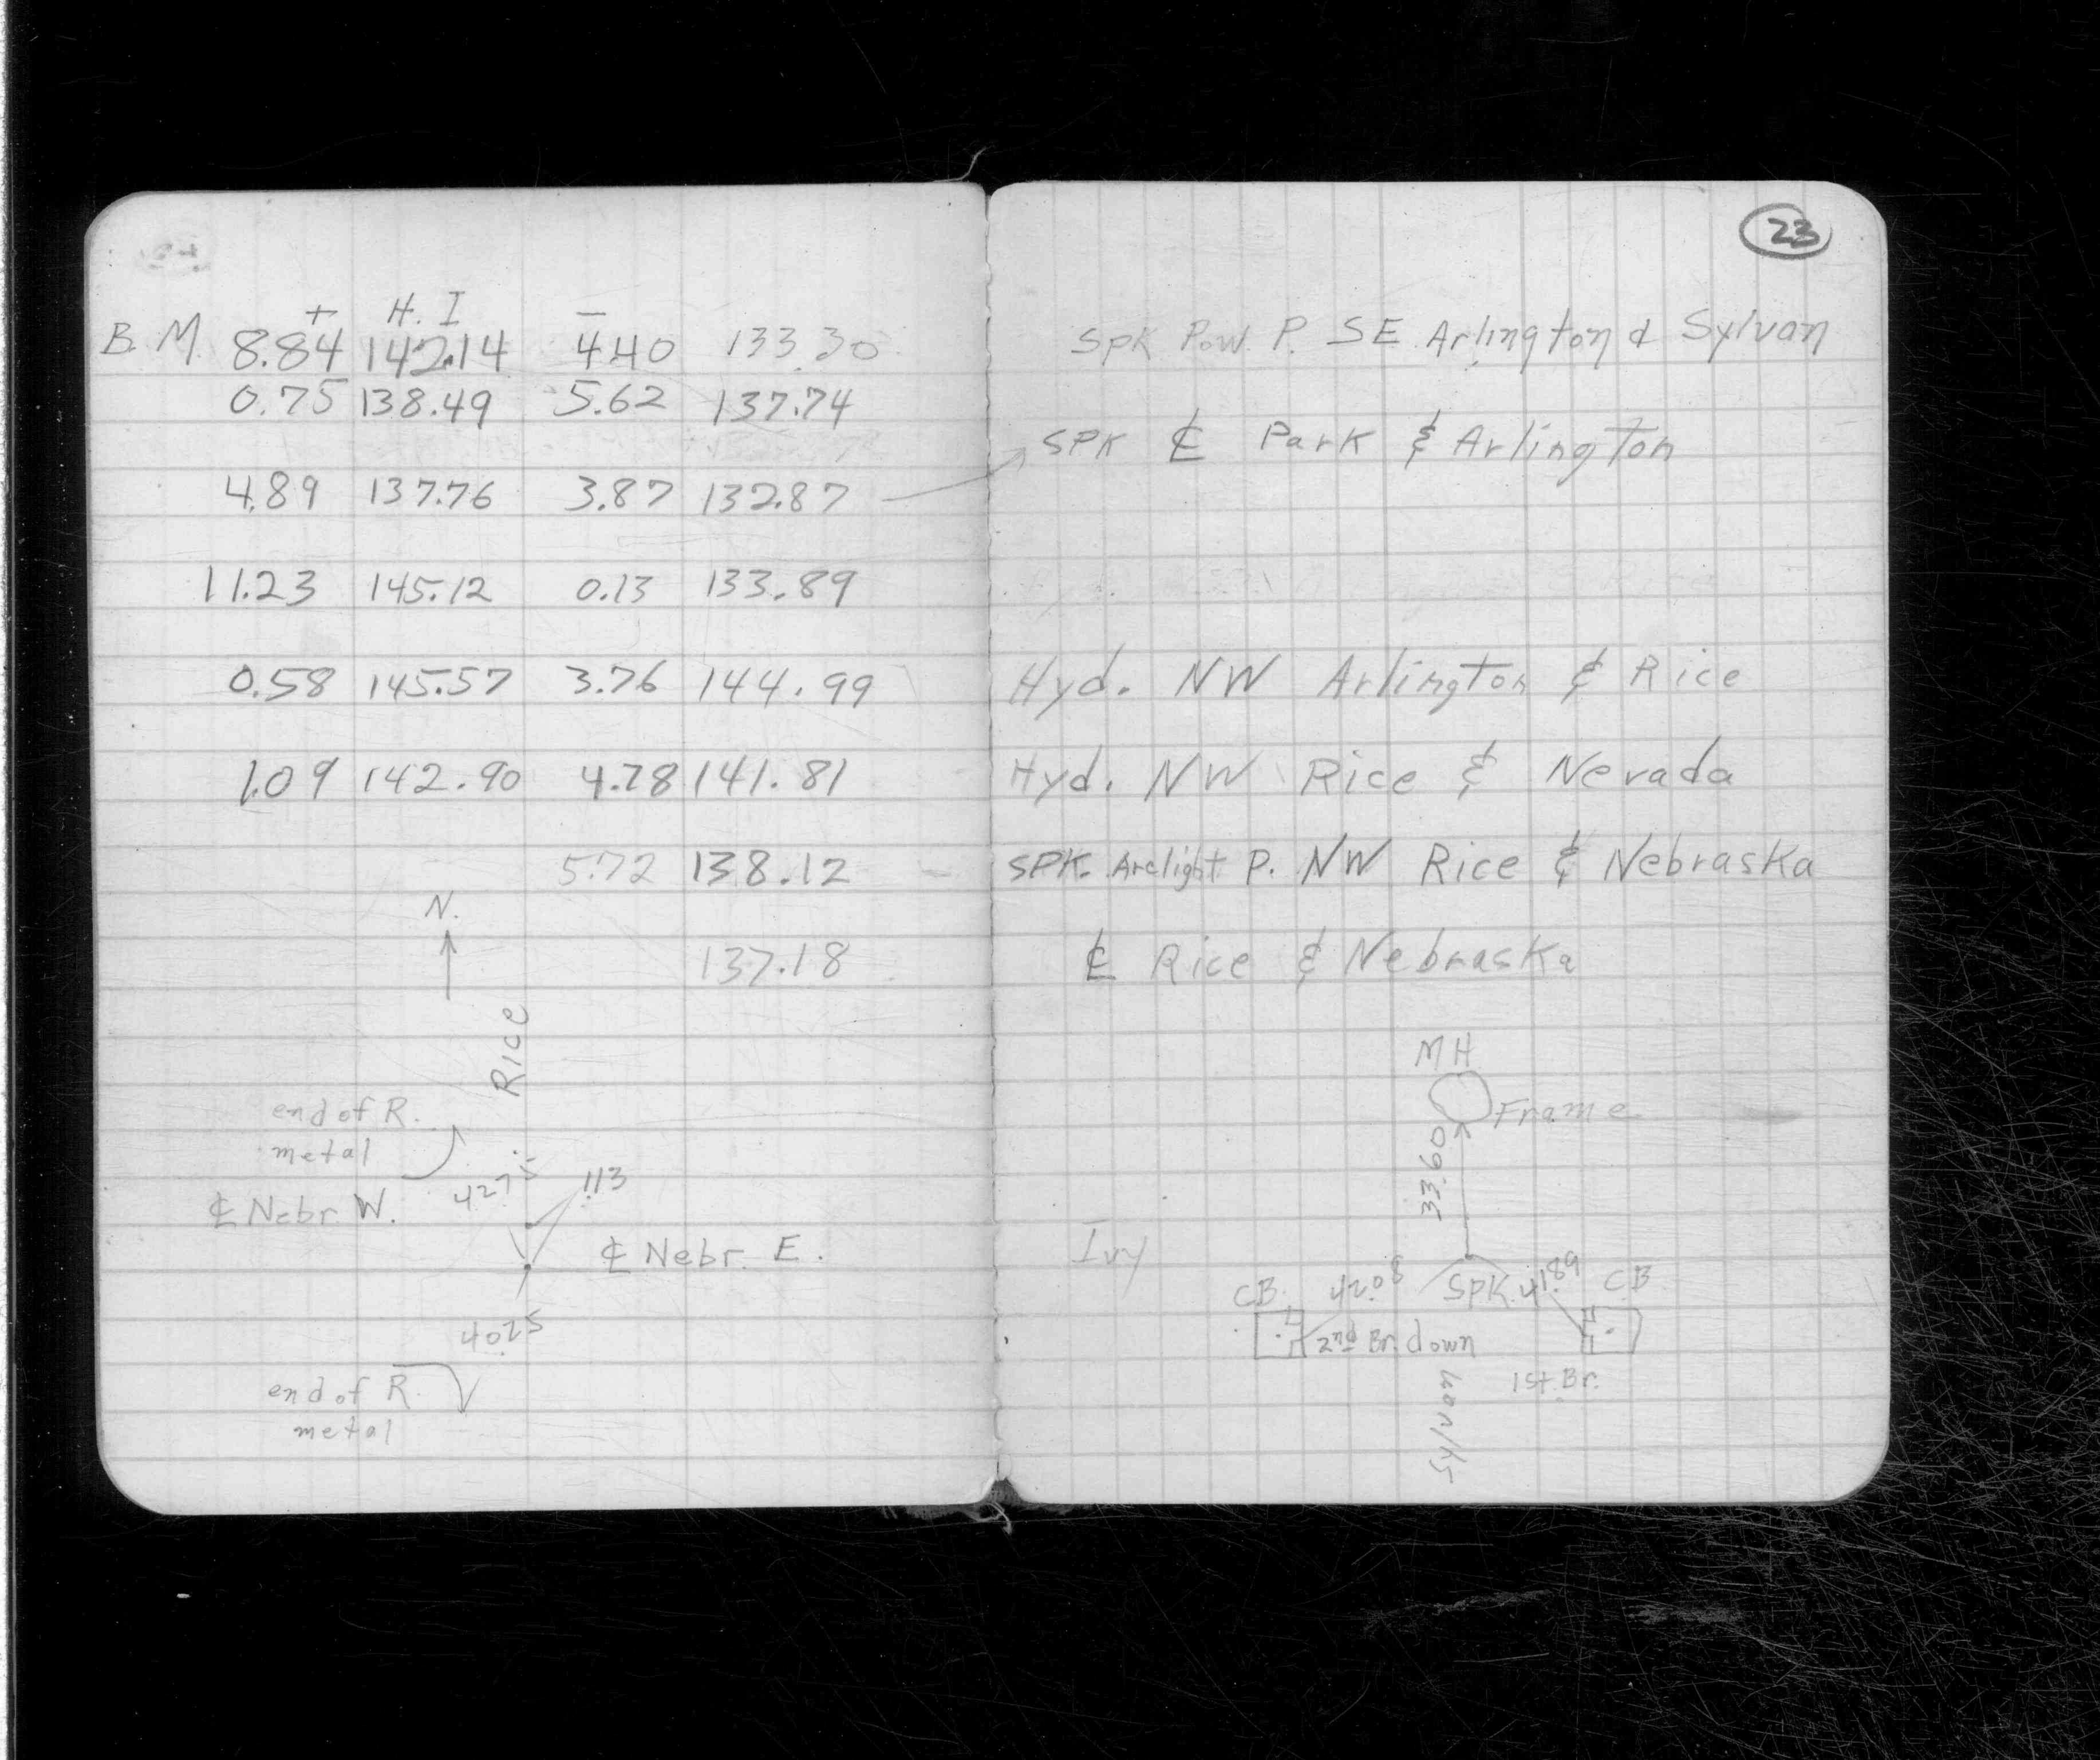 23
+ H. I −
B. M. 8.84 142.14 4.40 133.30 SPK Pow. P. SE Arlington & Sylvan
0.75 138.49 5.62 137.74
SPK ℄ Park & Arlington
4.89 137.76 3.87 132.87
11.23 145.12 0.13 133.89
0.58 145.57 3.76 144.99 Hyd. NW Arlington & Rice
1.09 142.90 4.78 141.81 Hyd. NW Rice & Nevada
5.72 138.12 SPK. Arclight P. NW Rice & Nebraska
N.
137.18 ℄ Rice & Nebraska
Rice
end of R.
metal
42.75
1.13
℄ Nebr. W.
℄ Nebr. E.
40.25
end of R.
metal
MH
Frame
33.60
Ivy
CB 42.08 SPK 41.89 CB
2nd Br. down
1st. Br.
Sylvan